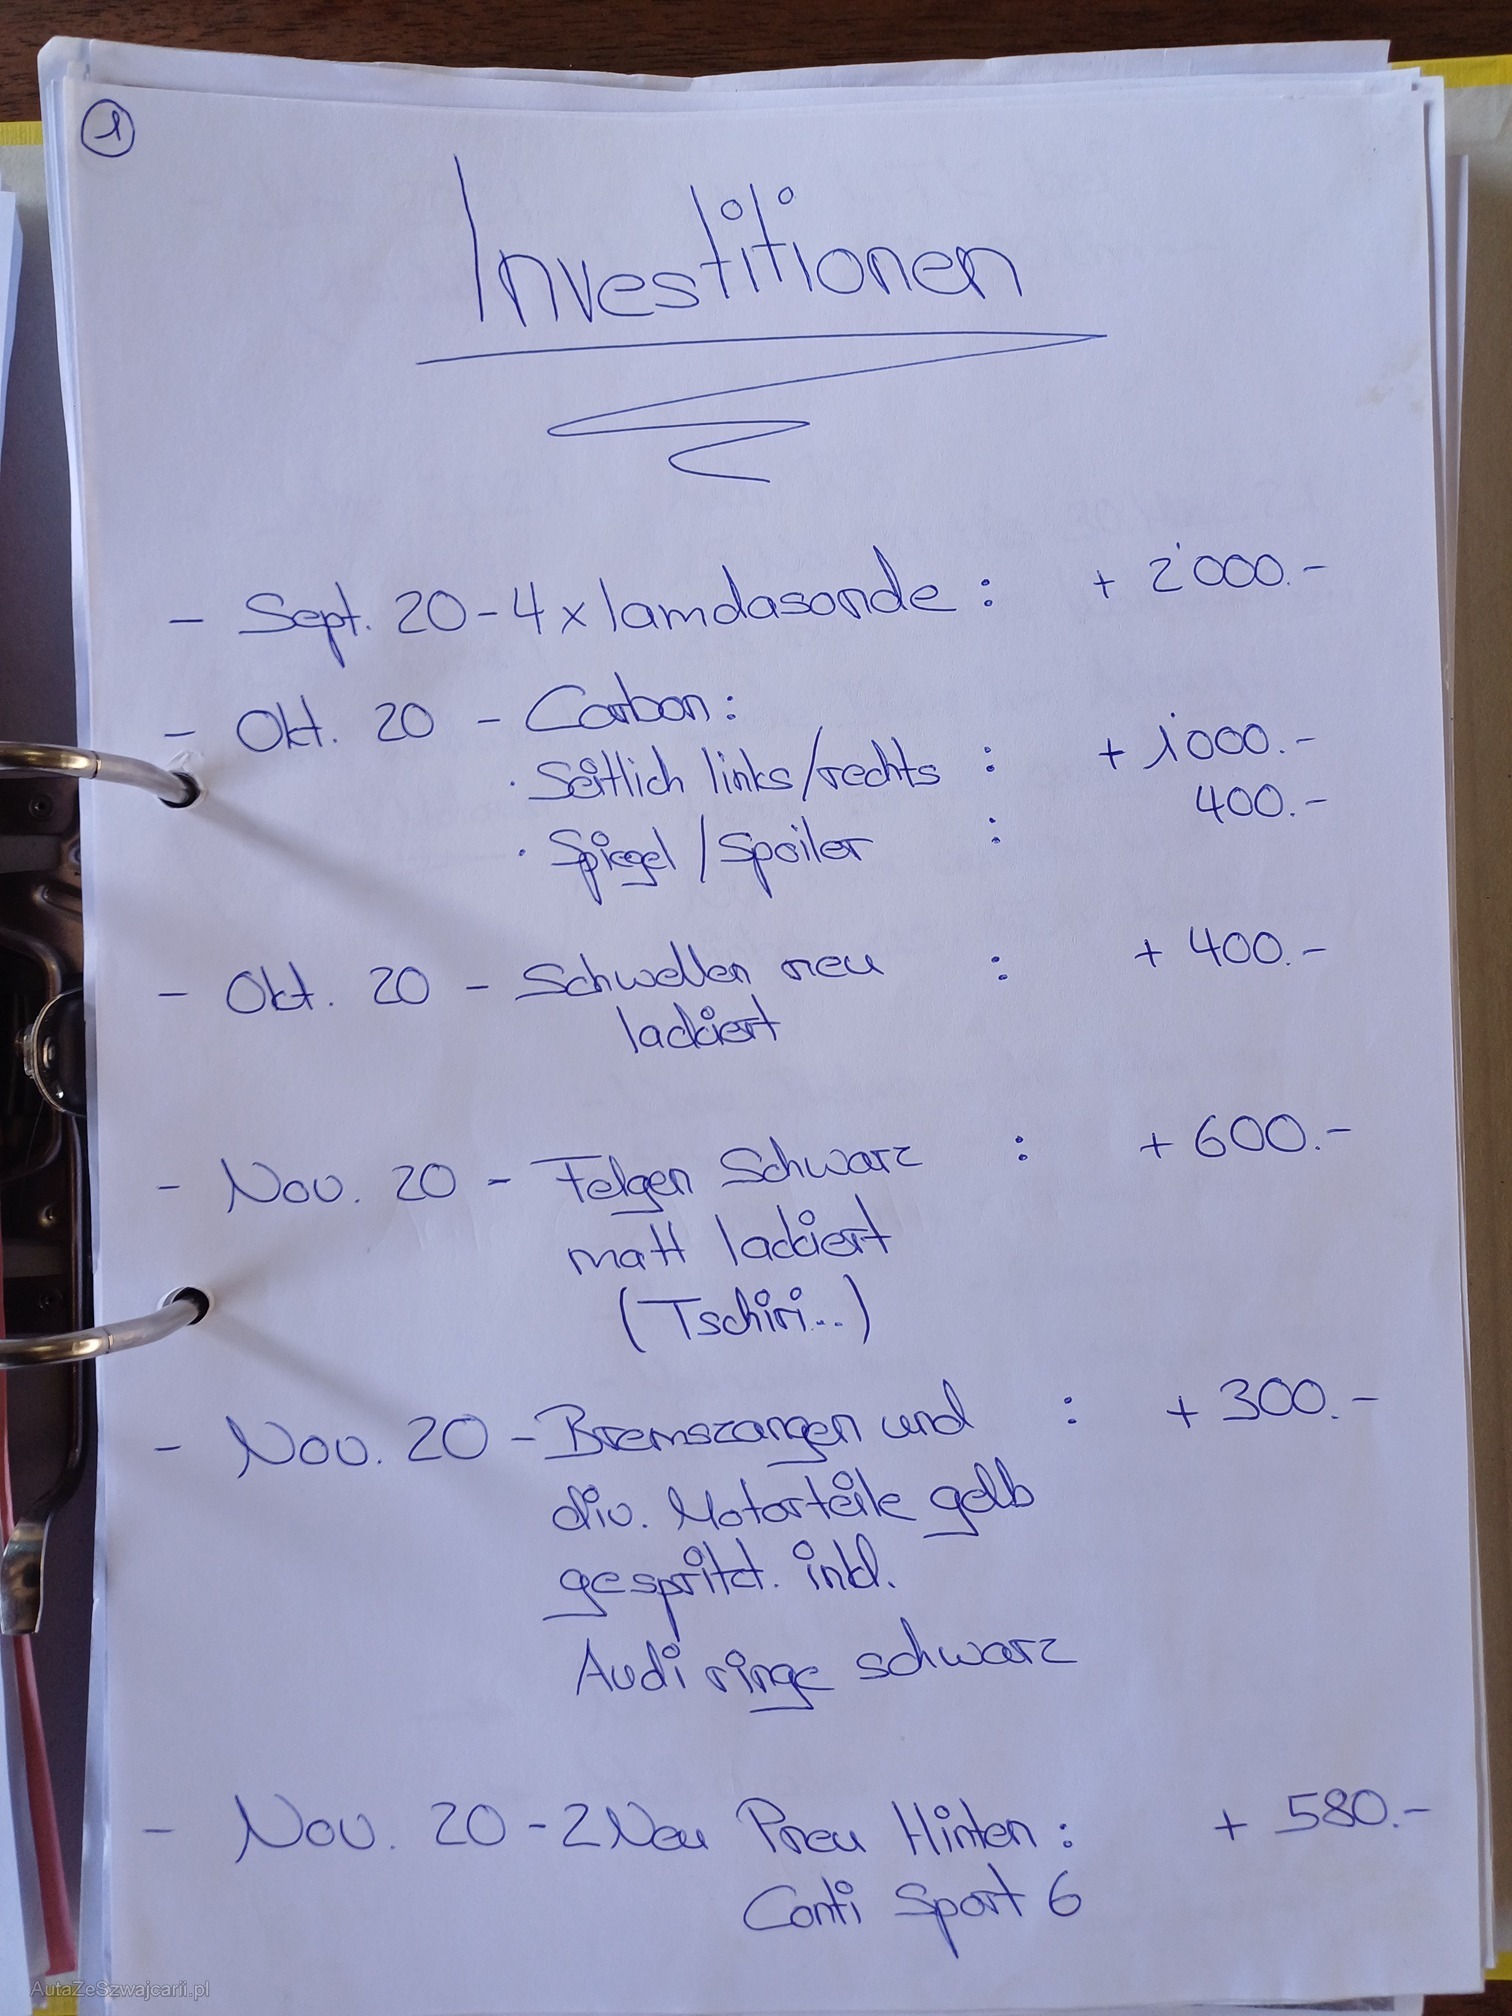 1
Investitionen
- Sept. 20 - 4 x lamdasonde : + 2'000.-
- Okt. 20 - Carbon :
· Seitlich links/rechts : + 1'000.-
· Spiegel / Spoiler : 400.-
- Okt. 20 - Schwellen neu : + 400.-
lackiert
- Nov. 20 - Felgen Schwarz : + 600.-
matt lackiert
(Tschiri...)
- Nov. 20 - Bremszangen und : + 300.-
div. Motorteile gelb
gespritzt. inkl.
Audi ringe schwarz
- Nov. 20 - 2 Neu Pneu Hinten : + 580.-
Conti Sport 6
AutaZeSzwajcarii.pl